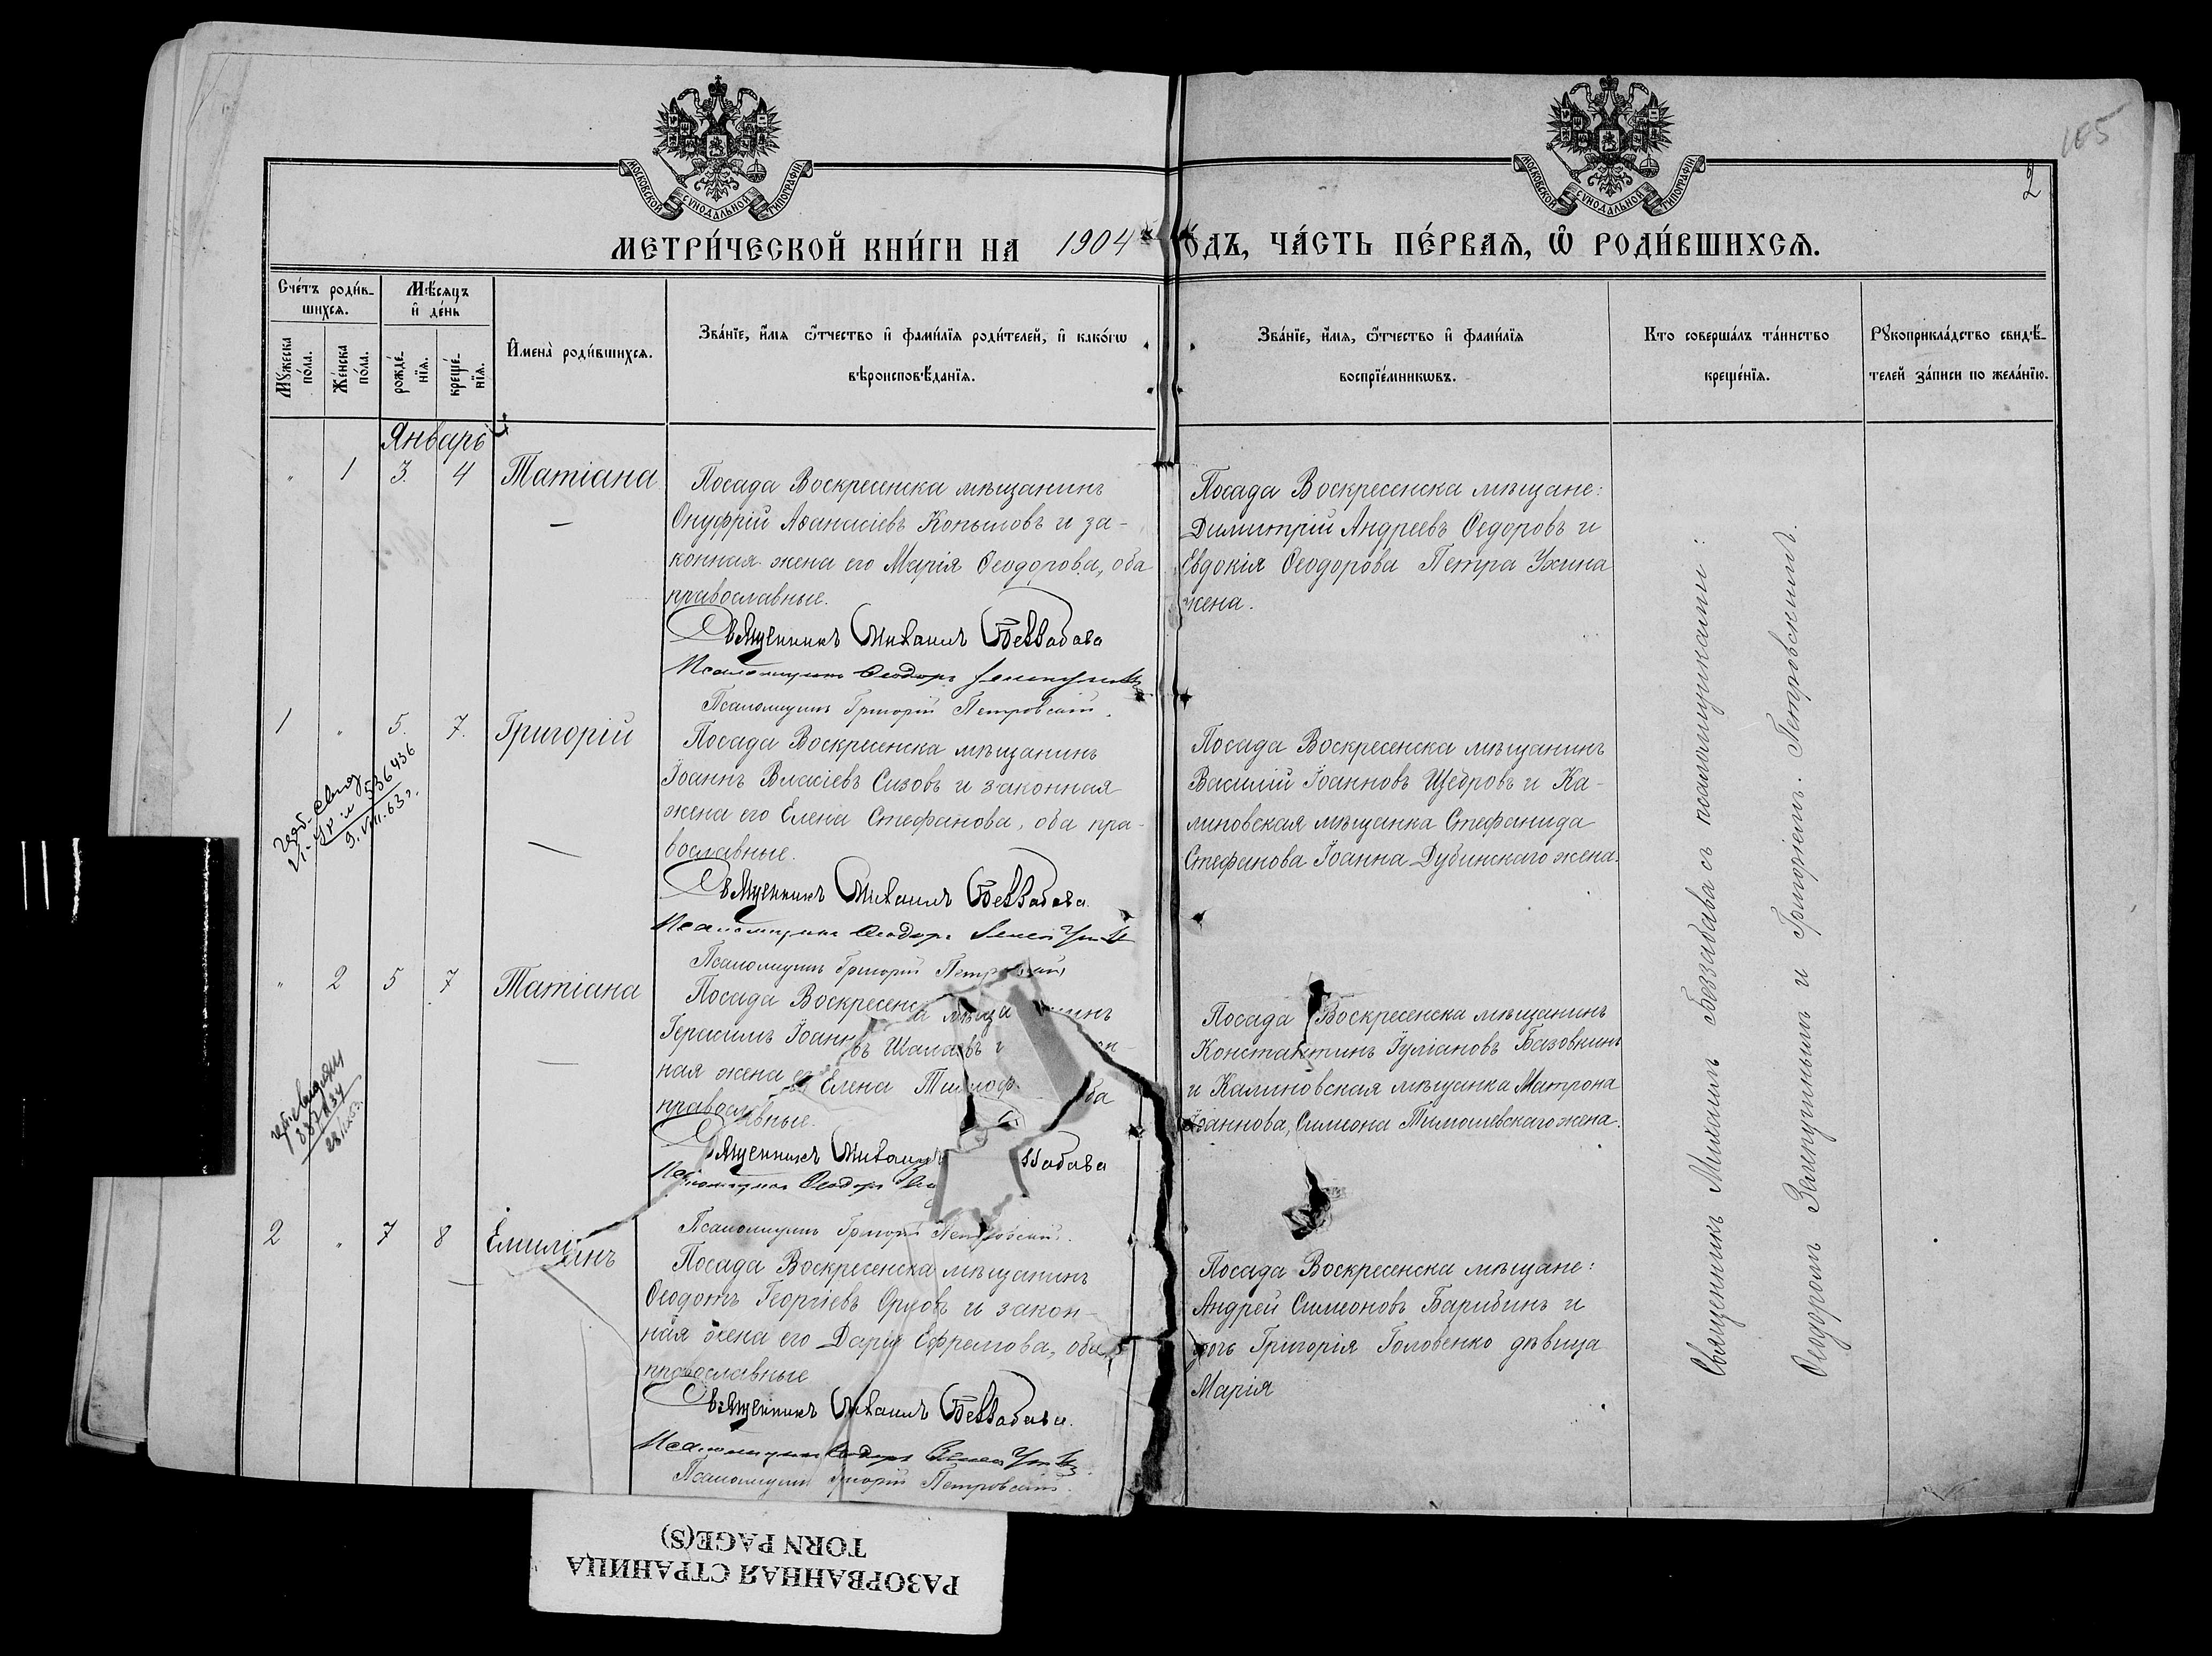 105
2
МОСКОВСКОЙ СѴНОДАЛЬНОЙ ТИПОГРАФІИ
МОСКОВСКОЙ СѴНОДАЛЬНОЙ ТИПОГРАФІИ
МЕТРИ́ЧЕСКОЙ КНИ́ГИ НА 1904 ГО́ДЪ, ЧА́СТЬ ПЕ́РВАЯ, Ѡ РОДИ́ВШИХСЯ.
Сче́тъ роди́в-
шихся.
Мѣ́сяцъ
и де́нь
Мꙋ́жеска по́ла.
Же́нска по́ла.
рожде́-
нїя.
креще́-
нїя.
И҆мена̀ роди́вшихся.
Зва́нїе, и҆́мя ѻ҆́тчество и҆ фами́лїя роди́телей, и҆ како́гѡ
вѣроисповѣ́данїя.
Зва́нїе, и҆́мя, ѻ҆́тчество и҆ фами́лїя
воспрїе́мникѡвъ.
Кто соверша́лъ та́инство
креще́нїя.
Рꙋкоприкла́дство свидѣ́-
телей за́писи по жела́нїю.
Январь
" 1 3. 4 Татіана
Посада Воскресенска мѣщанинъ
Онуфрій Аѳанасіевъ Копыловъ и за-
конная жена его Марія Ѳеодорова, оба
православные.
Священникъ Михаилъ Беззабава
Псаломщикъ Ѳеодоръ
Псаломщикъ Григорій Петровскій.
Посада Воскресенска мѣщане:
Димитрій Андреевъ Ѳедоровъ и
Евдокія Ѳеодорова Петра Ухина
жена.
1 " 5. 7. Григорій
536436
9.VIII.63г.
Посада Воскресенска мѣщанинъ
Іоаннъ Власіевъ Сизовъ и законная
жена его Елена Стефанова, оба пра-
вославные.
Священникъ Михаилъ Беззабава.
Псаломщикъ Ѳеодоръ
Псаломщикъ Григорій Петровскій
Посада Воскресенска мѣщанинъ
Василій Іоанновъ Щедровъ и Ка-
линовская мѣщанка Стефанида
Стефанова Іоанна Дубинскаго жена.
" 2 5 7 Татіана
Посада Воскресенск мѣща нинъ
Герасимъ Іоанновъ
ная жена его Елена Тимоф оба
православные.
Священникъ Михаилъ забава
Псаломщикъ Ѳеодоръ
Псаломщикъ Григорій Петровскій.
Посада Воскресенска мѣщанинъ
Константинъ Іуліановъ Базовкинъ
и Калиновская мѣщанка Матрона
Іоаннова, Симеона Тимошевскаго жена.
2 " 7 8 Емиліанъ
Посада Воскресенска мѣщанинъ
Ѳеодотъ Георгіевъ Орловъ и закон-
ная жена его Дарія Ефремова, оба
православные
Священникъ Михаилъ Беззабава.
Псаломщикъ Ѳеодоръ
Псаломщикъ Григорій Петровскій.
Посада Воскресенска мѣщане:
Андрей Симеоновъ Барибинъ и
дочь Григорія Головенко дѣвица
Марія
Священникъ Михаилъ Беззабава съ псаломщиками:
Ѳеодоромъ и Григоріемъ Петровскимъ.
РАЗОРВАННАЯ СТРАНИЦА
TORN PAGE(S)